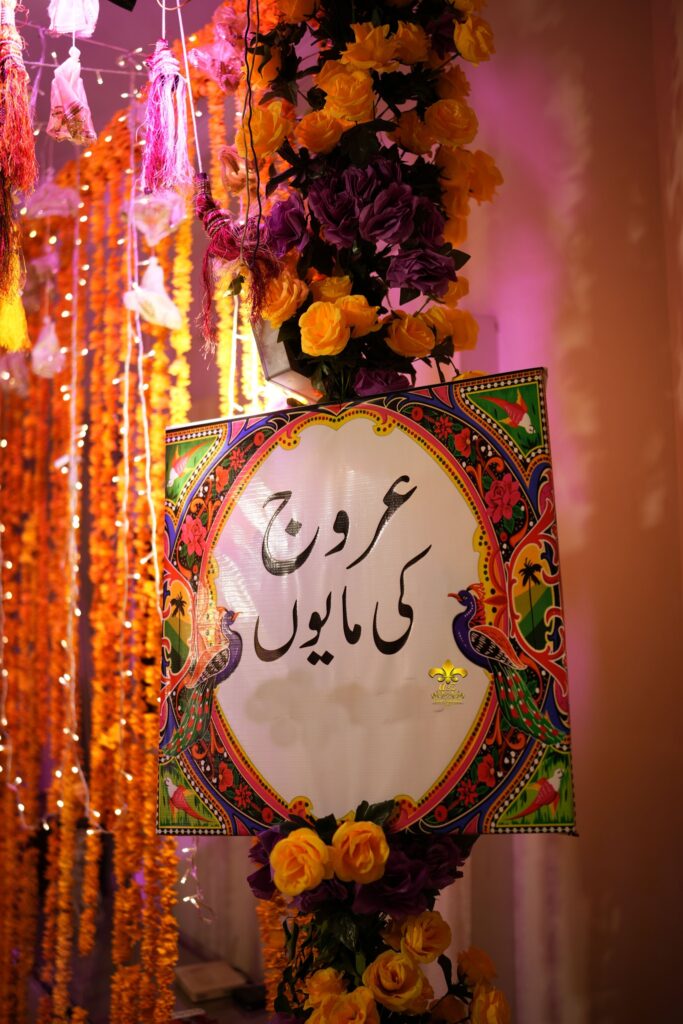 عروج
کی مایوں